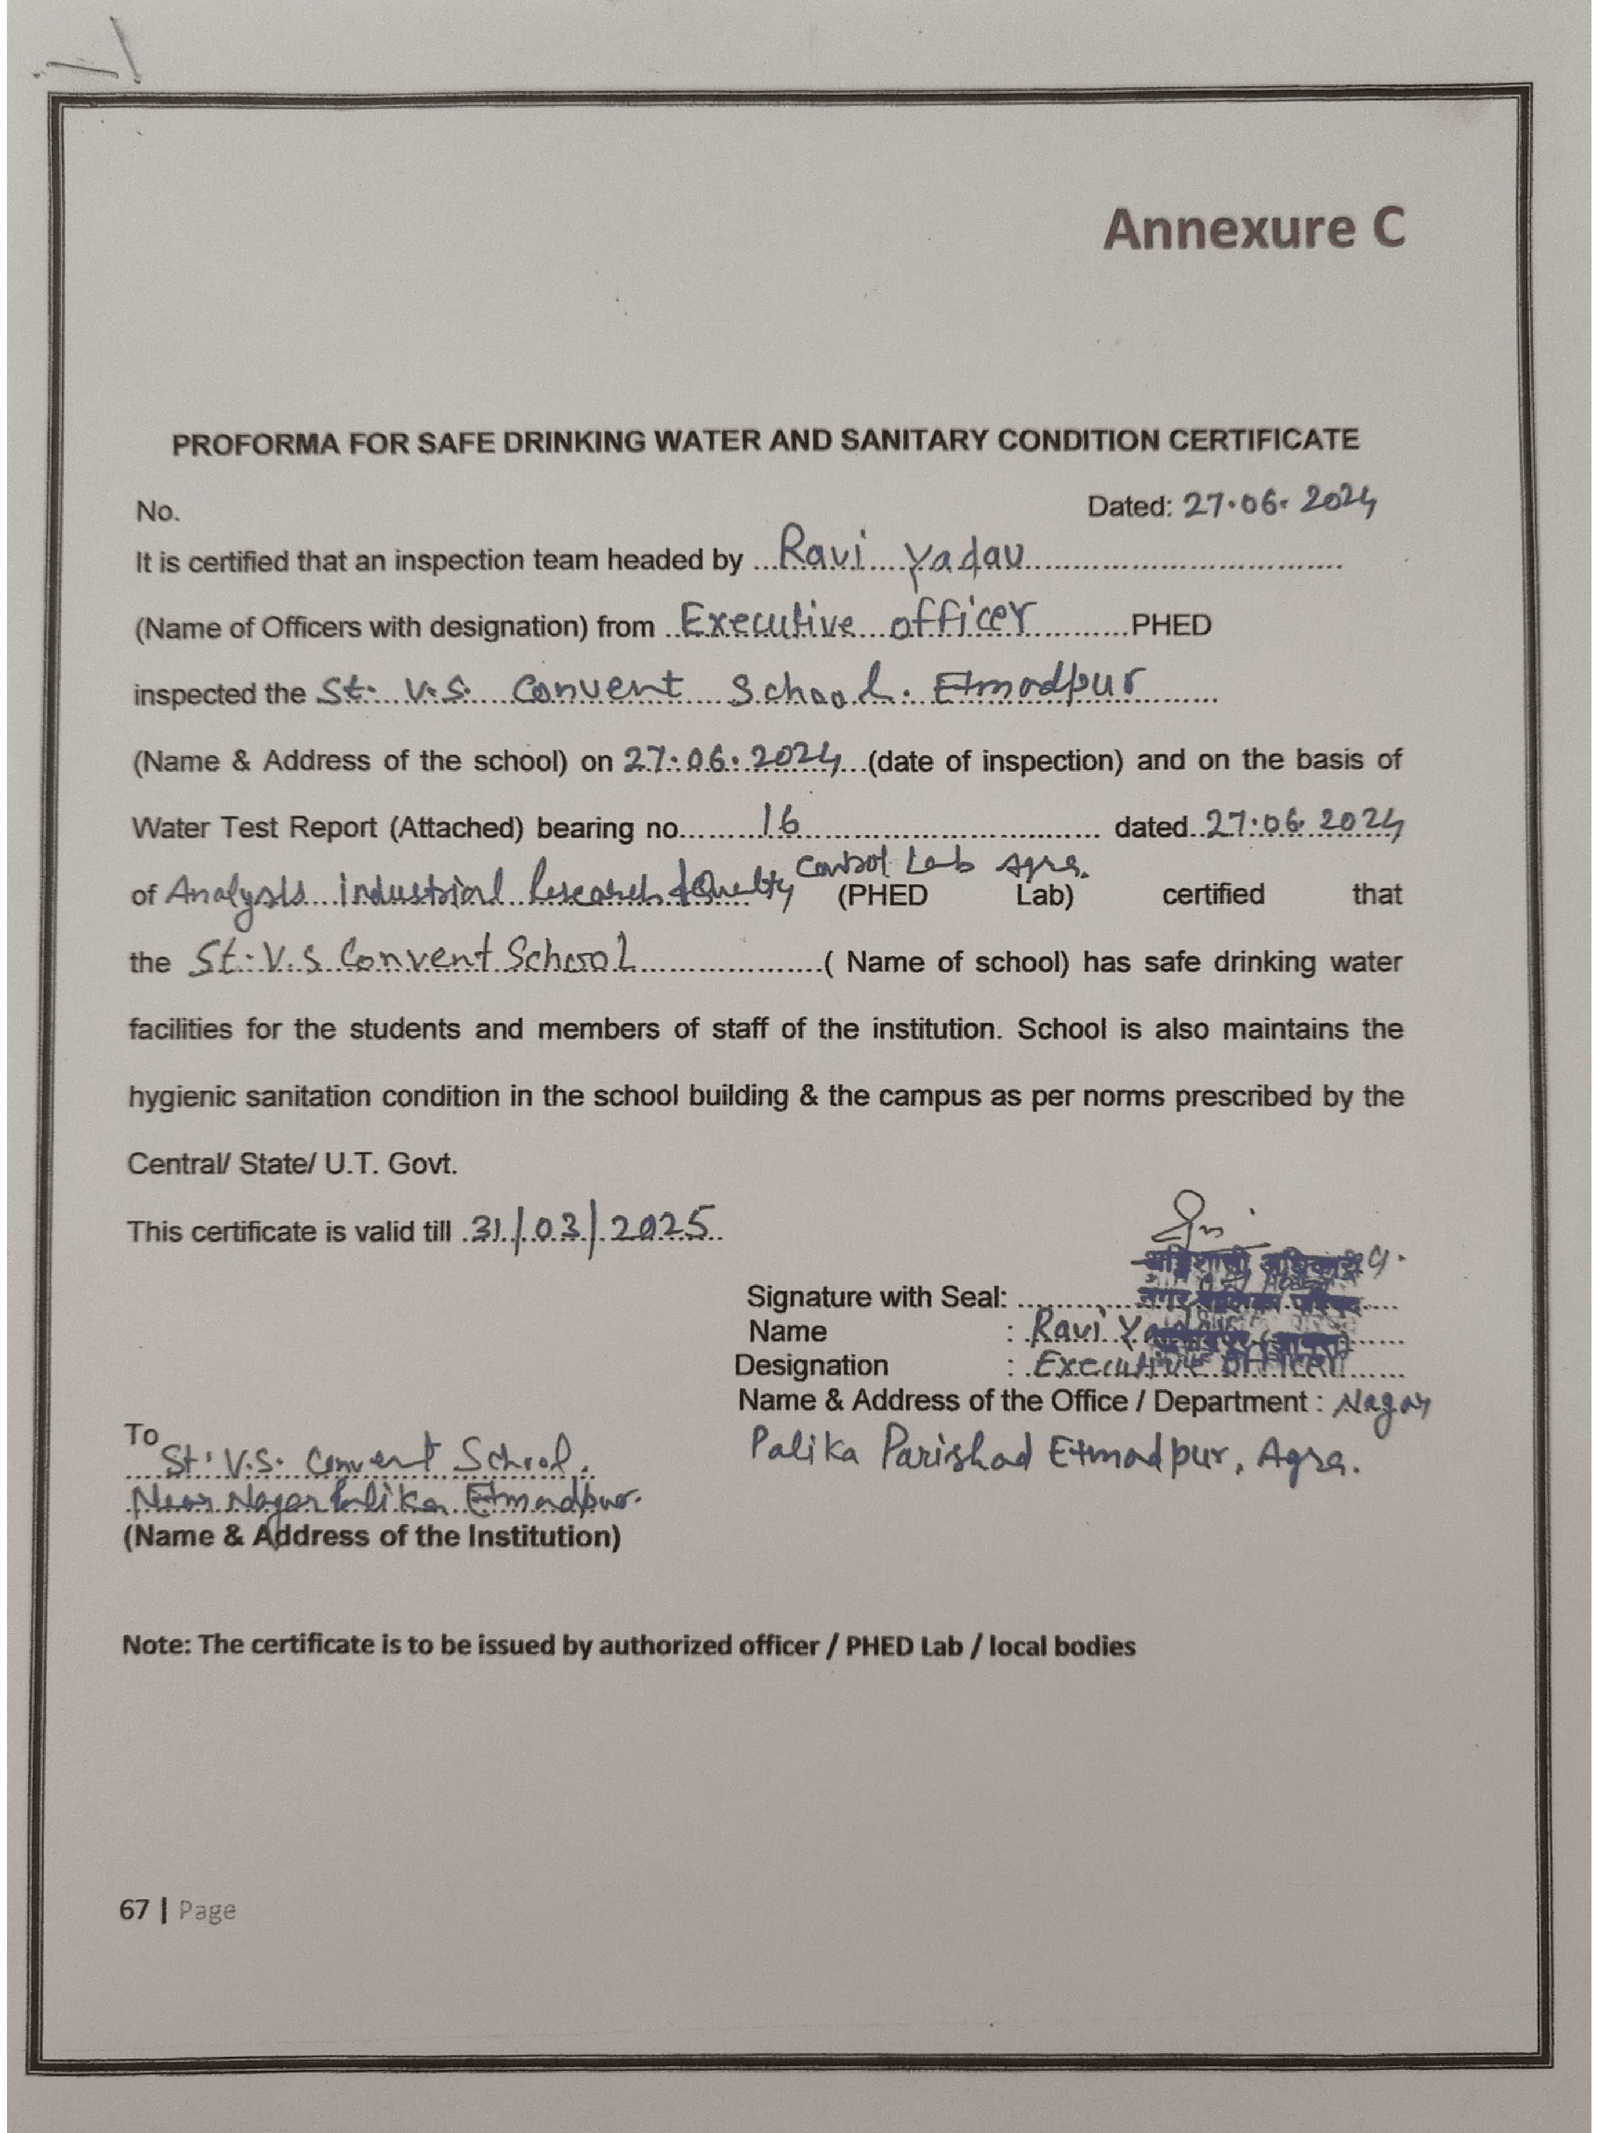 Annexure C
PROFORMA FOR SAFE DRINKING WATER AND SANITARY CONDITION CERTIFICATE
No. Dated: 27.06.2024
It is certified that an inspection team headed by ...Ravi Yadav...
(Name of Officers with designation) from ..Executive officer...PHED
inspected the St. V.S. Convent School. Etmadpur
(Name & Address of the school) on 27.06.2024 (date of inspection) and on the basis of
Water Test Report (Attached) bearing no. 16 dated 27.06.2024
Control Lab Agra.
of Analysis industrial Research & Quality (PHED Lab) certified that
the St. V.S Convent School ( Name of school) has safe drinking water
facilities for the students and members of staff of the institution. School is also maintains the
hygienic sanitation condition in the school building & the campus as per norms prescribed by the
Central/ State/ U.T. Govt.
This certificate is valid till 31/03/2025
अधिशासी अधिकारी
Signature with Seal: नगर पालिका परिषद
Name : Ravi Yadav
Designation : Executive officer
Name & Address of the Office / Department : Nagar
Palika Parishad Etmadpur, Agra.
To
St. V.S. Convent School.
Near Nagar Palika Etmadpur.
(Name & Address of the Institution)
Note: The certificate is to be issued by authorized officer / PHED Lab / local bodies
67 | Page